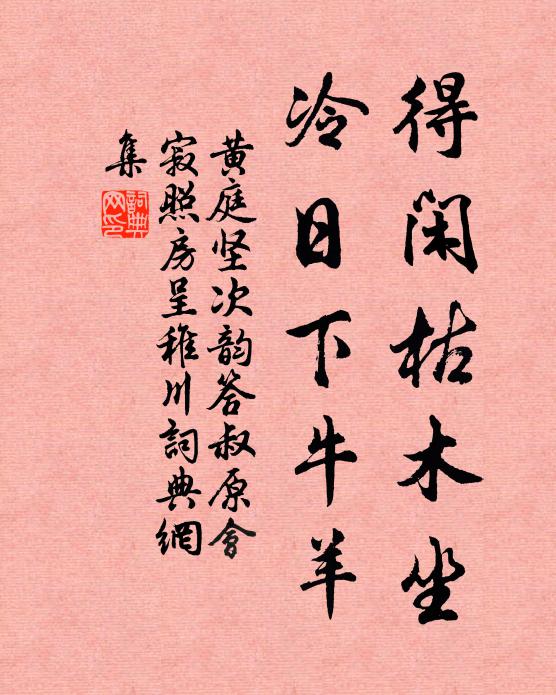 得閑枯木坐
冷日下牛羊
黄庭坚次韵答叔原會
寂照房呈稚川詞典網
集
詞典
网印